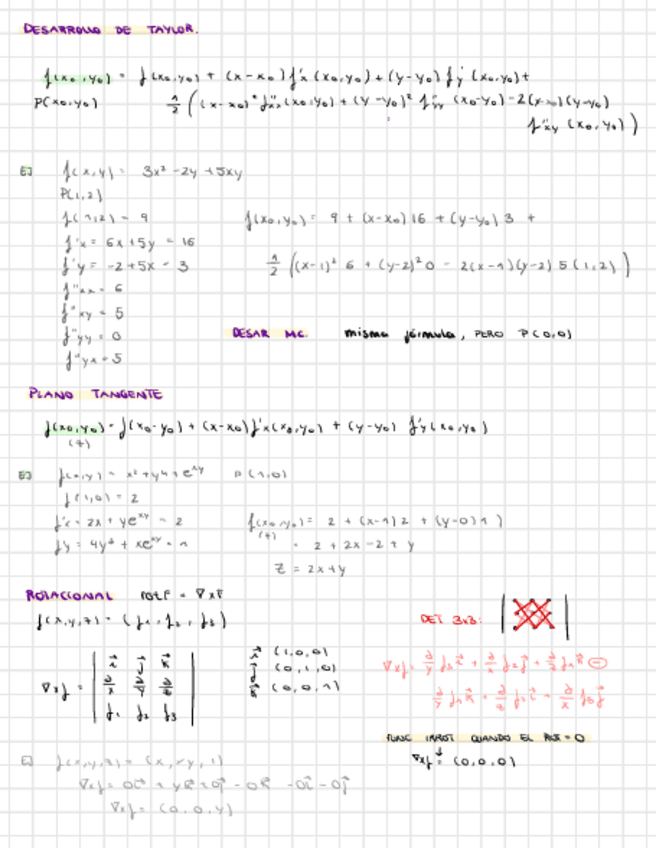 DESARROLLO DE TAYLOR.
f(x₀,y₀) = f(x₀,y₀) + (x-x₀) f'x (x₀,y₀) + (y-y₀) f'y (x₀,y₀) +
P(x₀,y₀) 1/2 ((x-x₀)² f''xx (x₀,y₀) + (y-y₀)² f''yy (x₀-y₀) - 2(x-x₀)(y-y₀)
f''xy (x₀,y₀))
EJ f(x,y) = 3x² - 2y + 5xy
P(1,2)
f(1,2) = 9 f(x₀,y₀) = 9 + (x-x₀) 16 + (y-y₀) 3 +
f'x = 6x + 5y = 16
f'y = -2 + 5x = 3 1/2 ((x-1)² 6 + (y-2)² 0 - 2(x-1)(y-2) 5 (1,2))
f''xx = 6
f''xy = 5
f''yy = 0 DESAR MC. misma fórmula, PERO P(0,0)
f''yx = 5
PLANO TANGENTE
f(x₀,y₀) = f(x₀-y₀) + (x-x₀) f'x (x₀,y₀) + (y-y₀) f'y (x₀,y₀)
(z)
EJ f(x,y) = x² + y⁴ + e^xy P(1,0)
f(1,0) = 2
f'x = 2x + ye^xy = 2 f(x₀,y₀) = 2 + (x-1) 2 + (y-0) 1)
(z)
f'y = 4y³ + xe^xy = 1 = 2 + 2x - 2 + y
Z = 2x + y
ROTACCIONAL rotF = ∇xF
f(x,y,z) = (f₁, f₂, f₃) DET 3x3:
∇xf = | i j k | i (1,0,0)
| ∂/x ∂/y ∂/z | j (0,1,0)
| f₁ f₂ f₃ | k (0,0,1)
∇xf = ∂/y f₃ i + ∂/z f₁ j + ∂/x f₂ k -
∂/y f₁ k - ∂/z f₂ i - ∂/x f₃ j
FUNC IRROT QUANDO EL ROT = 0
∇xf = (0,0,0)
EJ f(x,y,z) = (x, xy, 1)
∇xf = 0i + yk + 0j - 0k - 0i - 0j
∇xf = (0,0,y)